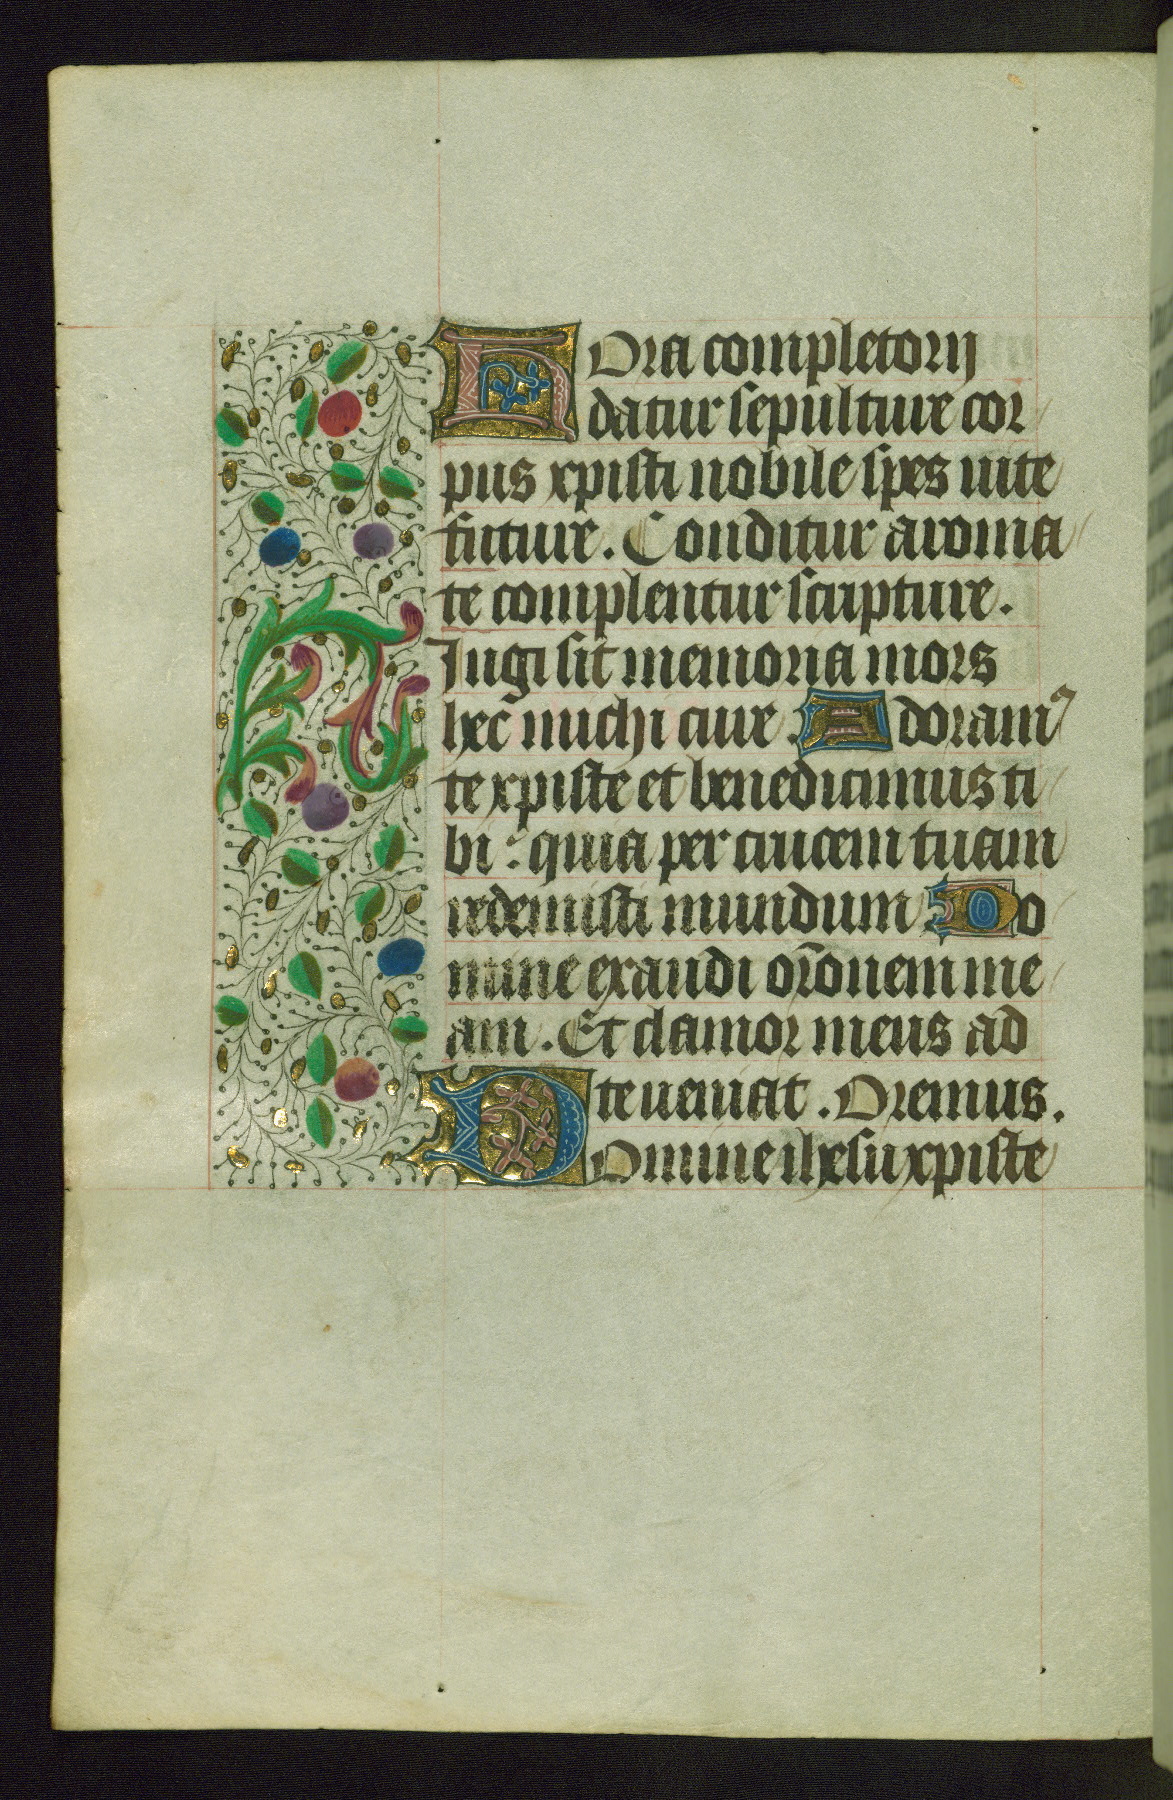 Hora completorij
datur sepulture cor
pus xpisti nobile spes uite
future. Conditur aroma
te complentur scripture.
Iugi sit memoria mors
hec michi cure. Adoram⁹
te xpiste et benedicimus ti
bi : quia per crucem tuam
redemisti mundum Do
mine exaudi or̄onem me
am. Et clamor meus ad
te ueniat. Oremus.
Domine ihesu xpiste